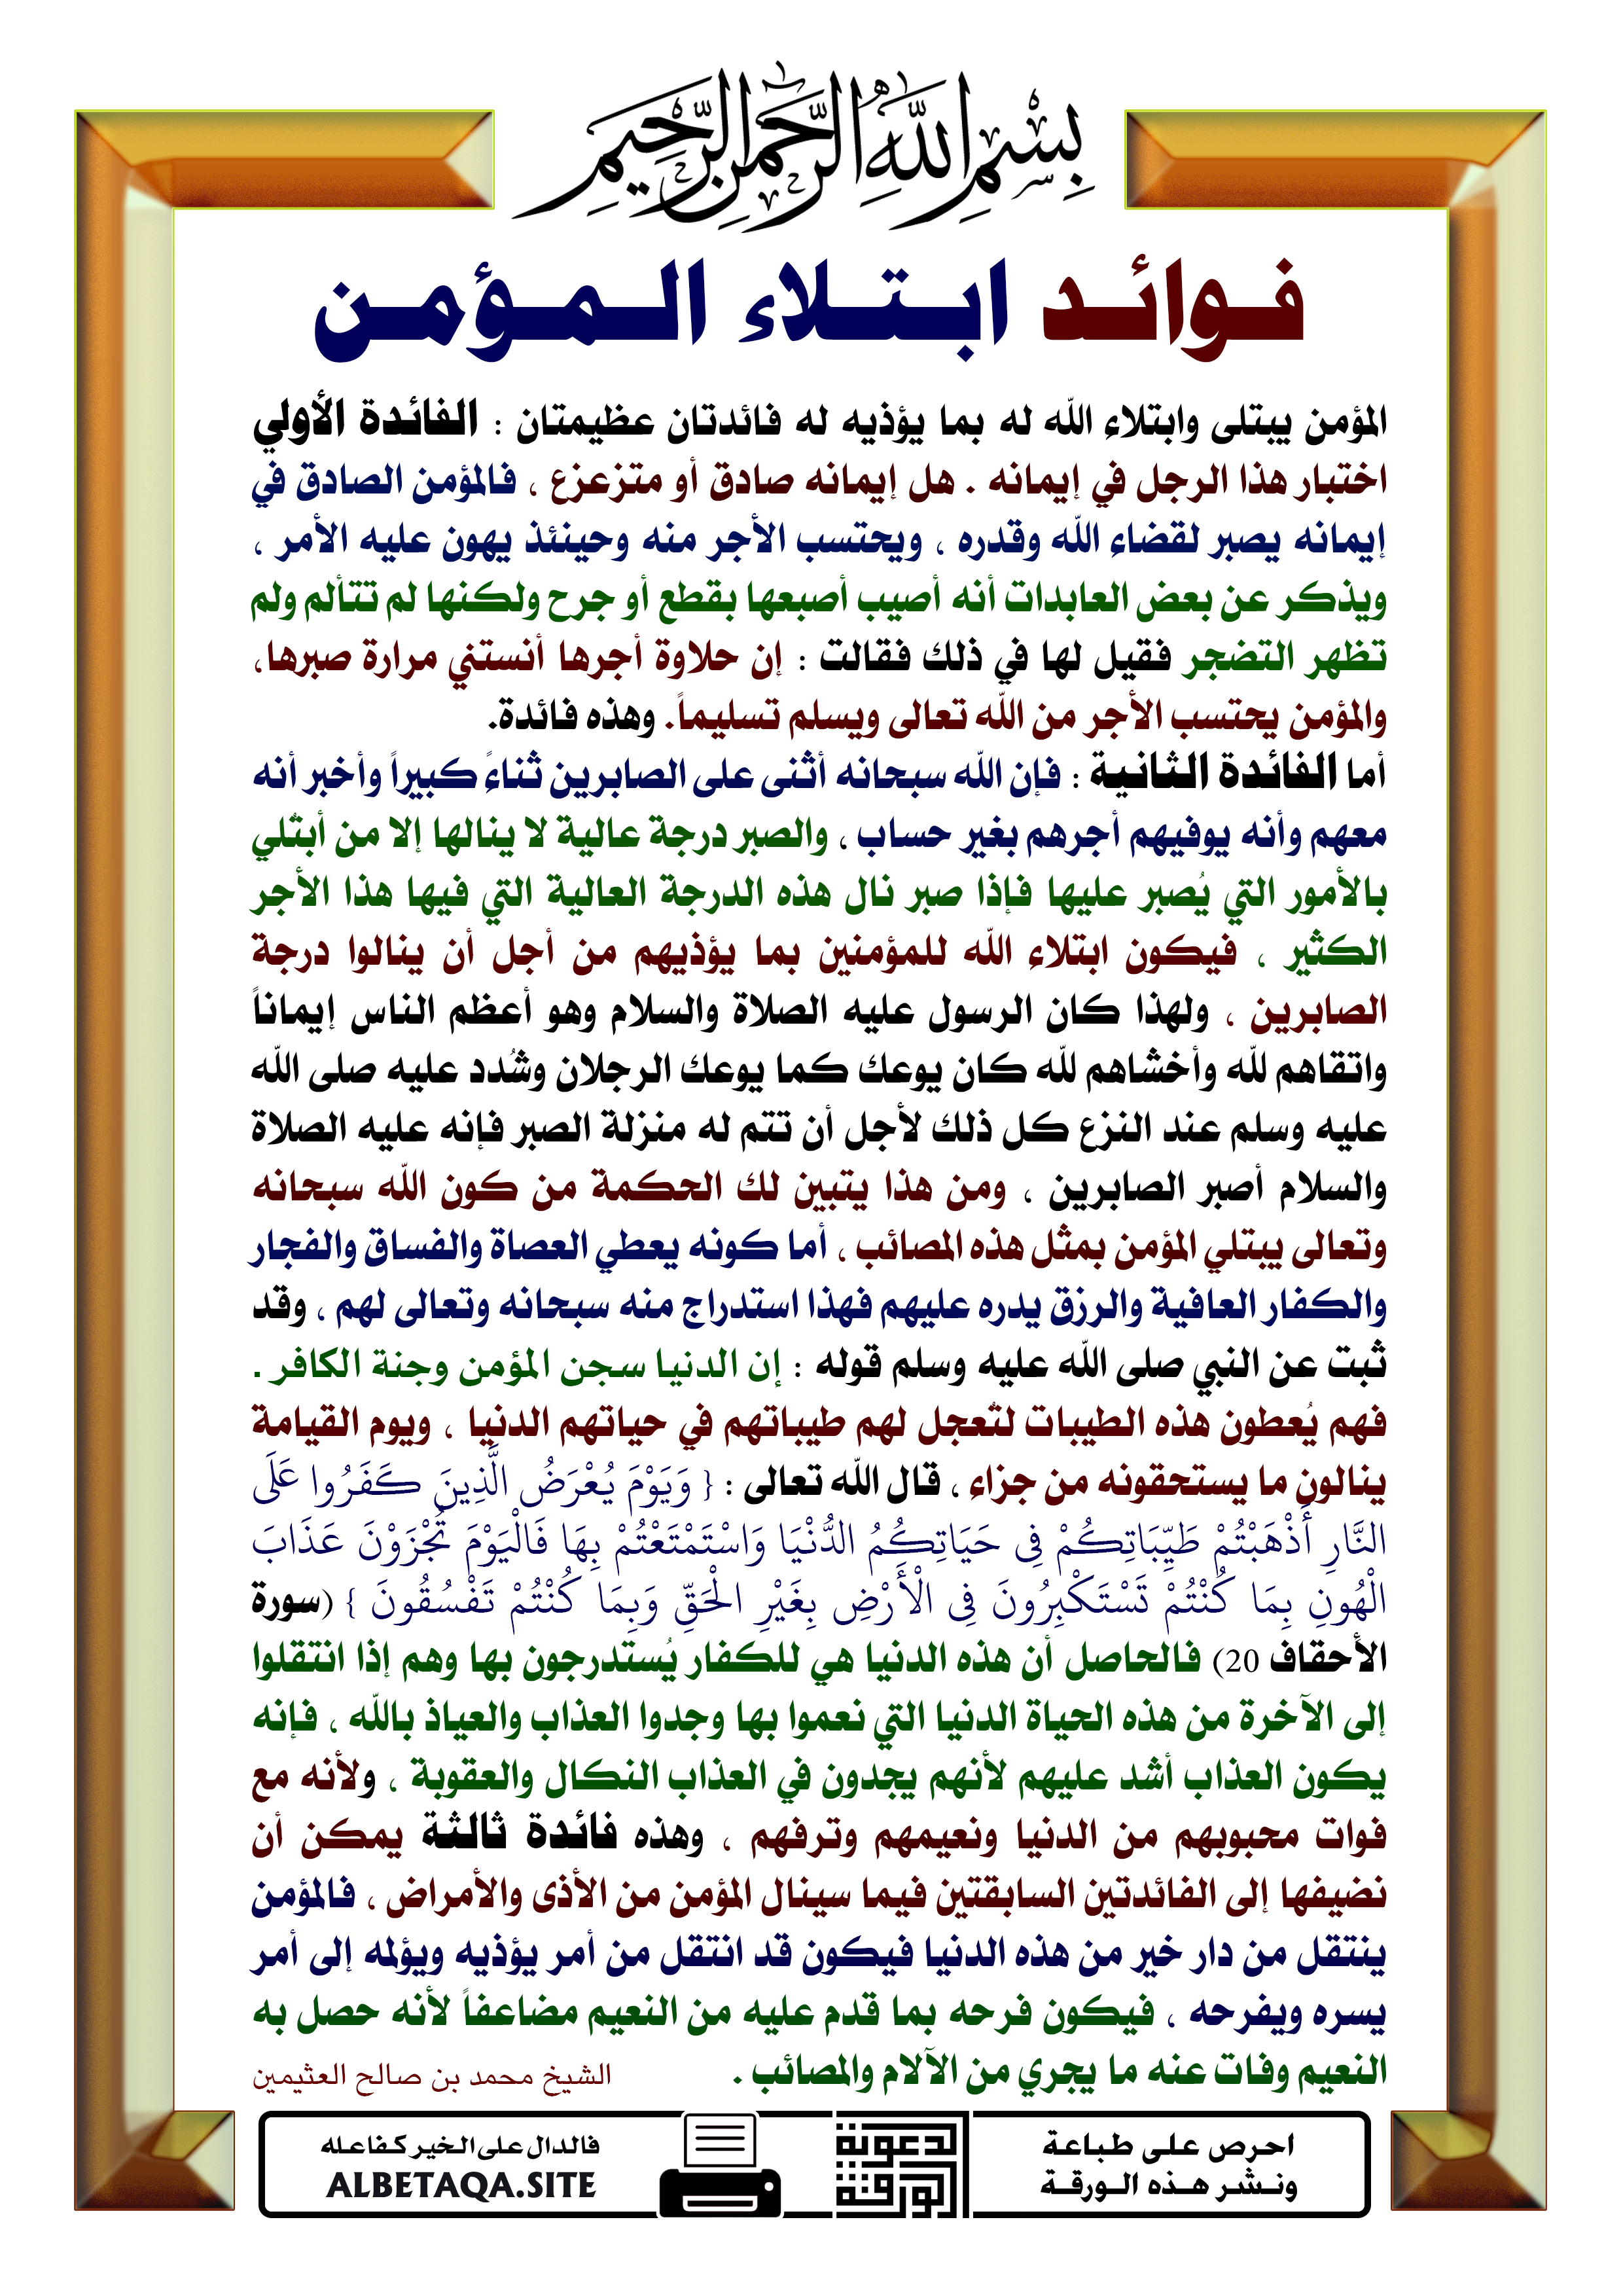 بسم الله الرحمن الرحيم
فوائد ابتلاء المؤمن
المؤمن يبتلى وابتلاء الله له بما يؤذيه له فائدتان عظيمتان : الفائدة الأولي
اختبار هذا الرجل في إيمانه . هل إيمانه صادق أو متزعزع ، فالمؤمن الصادق في
إيمانه يصبر لقضاء الله وقدره ، ويحتسب الأجر منه وحينئذ يهون عليه الأمر ،
ويذكر عن بعض العابدات أنه أصيب أصبعها بقطع أو جرح ولكنها لم تتألم ولم
تظهر التضجر فقيل لها في ذلك فقالت : إن حلاوة أجرها أنستني مرارة صبرها،
والمؤمن يحتسب الأجر من الله تعالى ويسلم تسليماً. وهذه فائدة.
أما الفائدة الثانية : فإن الله سبحانه أثنى على الصابرين ثناءً كبيراً وأخبر أنه
معهم وأنه يوفيهم أجرهم بغير حساب ، والصبر درجة عالية لا ينالها إلا من أبتُلي
بالأمور التي يُصبر عليها فإذا صبر نال هذه الدرجة العالية التي فيها هذا الأجر
الكثير ، فيكون ابتلاء الله للمؤمنين بما يؤذيهم من أجل أن ينالوا درجة
الصابرين ، ولهذا كان الرسول عليه الصلاة والسلام وهو أعظم الناس إيماناً
واتقاهم لله وأخشاهم لله كان يوعك كما يوعك الرجلان وشُدد عليه صلى الله
عليه وسلم عند النزع كل ذلك لأجل أن تتم له منزلة الصبر فإنه عليه الصلاة
والسلام أصبر الصابرين ، ومن هذا يتبين لك الحكمة من كون الله سبحانه
وتعالى يبتلي المؤمن بمثل هذه المصائب ، أما كونه يعطي العصاة والفساق والفجار
والكفار العافية والرزق يدره عليهم فهذا استدراج منه سبحانه وتعالى لهم ، وقد
ثبت عن النبي صلى الله عليه وسلم قوله : إن الدنيا سجن المؤمن وجنة الكافر .
فهم يُعطون هذه الطيبات لتُعجل لهم طيباتهم في حياتهم الدنيا ، ويوم القيامة
ينالون ما يستحقونه من جزاء ، قال الله تعالى : { وَيَوْمَ يُعْرَضُ الَّذِينَ كَفَرُوا عَلَى
النَّارِ أَذْهَبْتُمْ طَيِّبَاتِكُمْ فِي حَيَاتِكُمُ الدُّنْيَا وَاسْتَمْتَعْتُمْ بِهَا فَالْيَوْمَ تُجْزَوْنَ عَذَابَ
الْهُونِ بِمَا كُنْتُمْ تَسْتَكْبِرُونَ فِي الْأَرْضِ بِغَيْرِ الْحَقِّ وَبِمَا كُنْتُمْ تَفْسُقُونَ } (سورة
الأحقاف 20) فالحاصل أن هذه الدنيا هي للكفار يُستدرجون بها وهم إذا انتقلوا
إلى الآخرة من هذه الحياة الدنيا التي نعموا بها وجدوا العذاب والعياذ بالله ، فإنه
يكون العذاب أشد عليهم لأنهم يجدون في العذاب النكال والعقوبة ، ولأنه مع
فوات محبوبهم من الدنيا ونعيمهم وترفهم ، وهذه فائدة ثالثة يمكن أن
نضيفها إلى الفائدتين السابقتين فيما سينال المؤمن من الأذى والأمراض ، فالمؤمن
ينتقل من دار خير من هذه الدنيا فيكون قد انتقل من أمر يؤذيه ويؤلمه إلى أمر
يسره ويفرحه ، فيكون فرحه بما قدم عليه من النعيم مضاعفاً لأنه حصل به
النعيم وفات عنه ما يجري من الآلام والمصائب .
الشيخ محمد بن صالح العثيمين
احرص على طباعة
ونشر هذه الورقة
الورقة
الدعوية
فالدال على الخير كفاعله
ALBETAQA.SITE